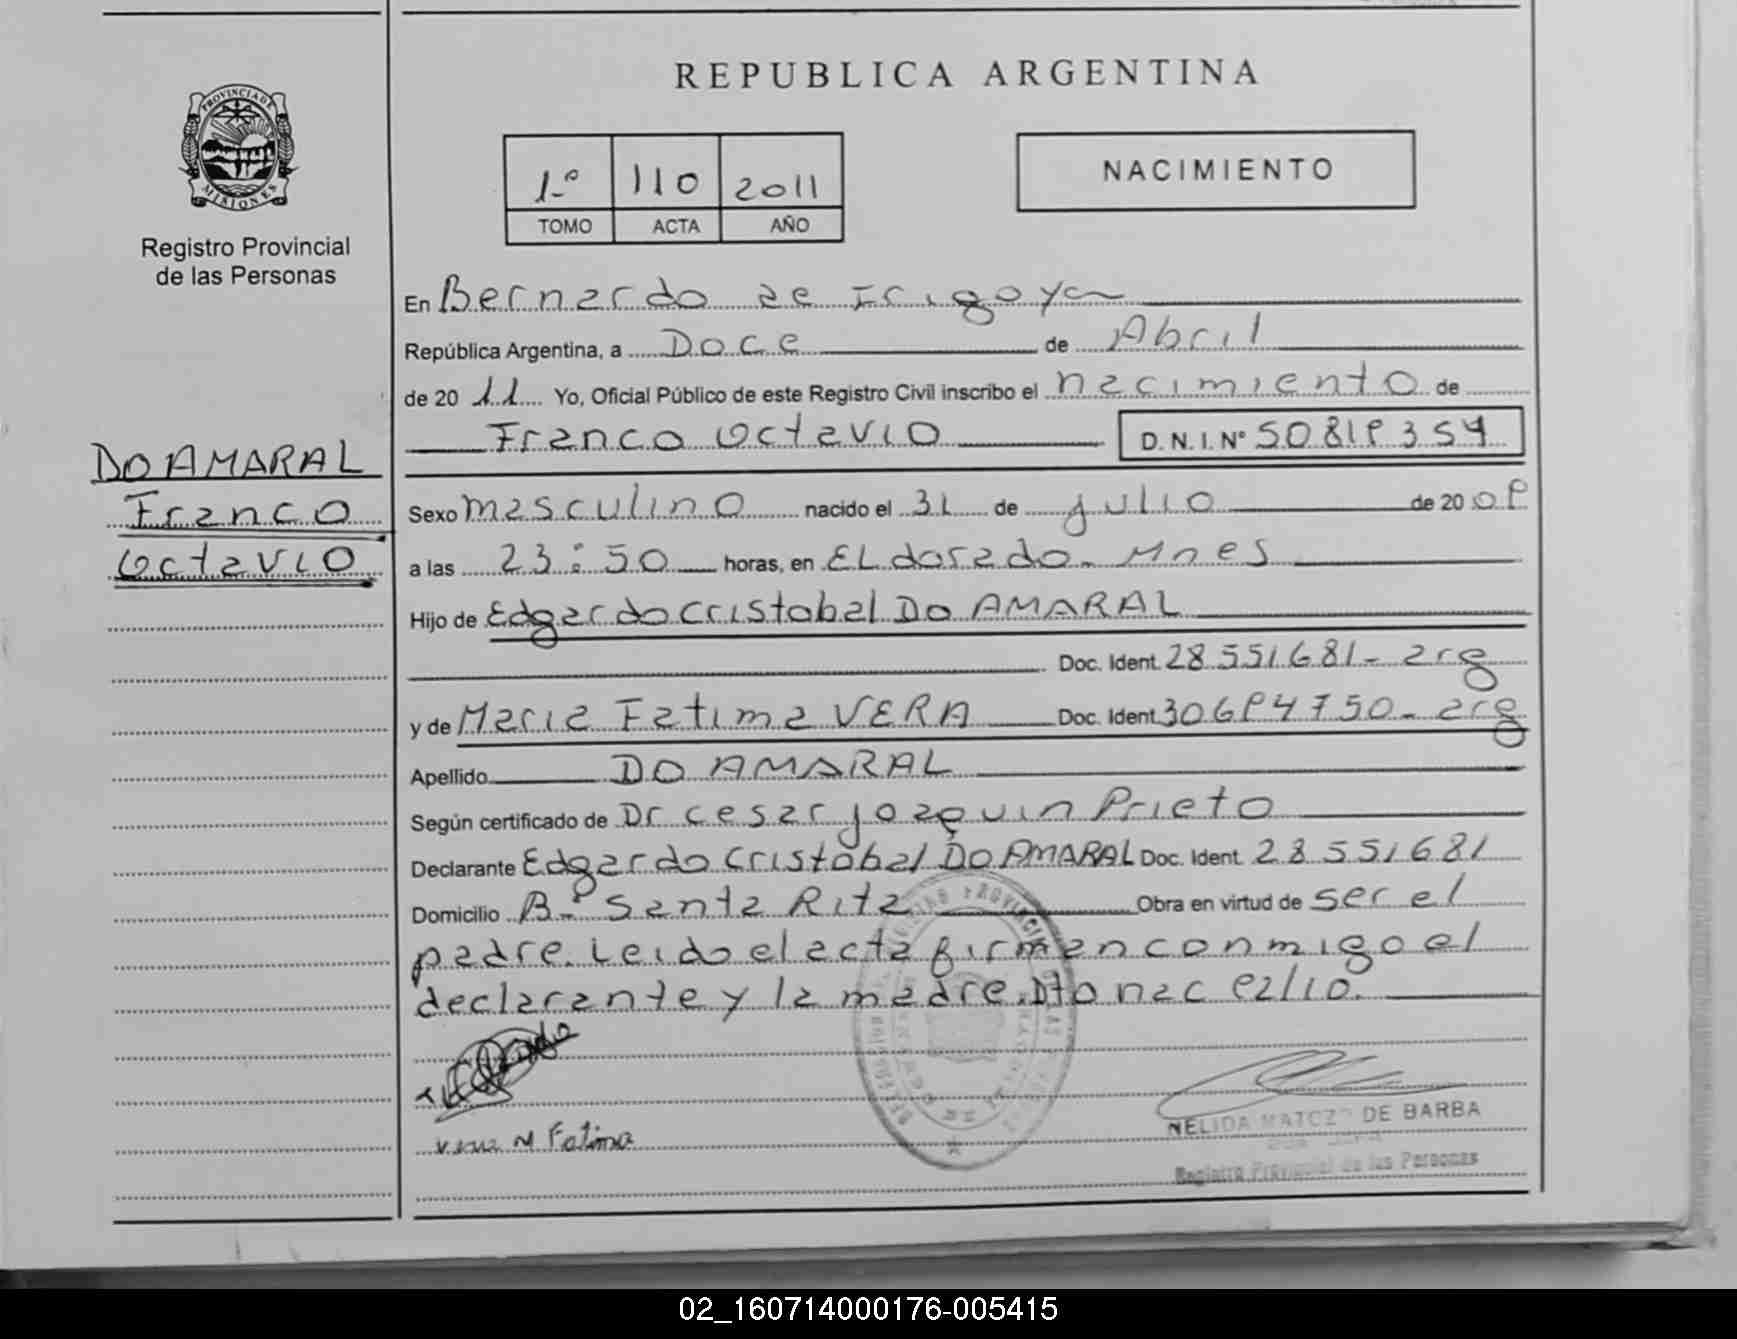 REPUBLICA ARGENTINA
PROVINCIA DE
MISIONES
Registro Provincial
de las Personas
1º 110 2011
TOMO ACTA AÑO
NACIMIENTO
En Bernardo de Irigoyen
República Argentina, a Doce de Abril
de 2011 Yo, Oficial Público de este Registro Civil inscribo el nacimiento de
Franco Octavio D.N.I. Nº 50819354
DO AMARAL
Franco
Octavio
Sexo masculino nacido el 31 de julio de 2009
a las 23:50 horas, en ELdorado - Mnes
Hijo de Edgardo Cristobal DO AMARAL
Doc. Ident. 28551681 - arg
y de Maria Fatima VERA Doc. Ident 30694750 - arg
Apellido DO AMARAL
Según certificado de Dr Cesar Joaquin Prieto
Declarante Edgardo Cristobal DO AMARAL Doc. Ident. 28551681
Domicilio Bº Santa Rita Obra en virtud de ser el
padre. Leido el acta firman conmigo el
declarante y la madre. Dto nac 92/10.
Vera M Fatima
NELIDA MATOZO DE BARBA
Registro Provincial de las Personas
02_160714000176-005415